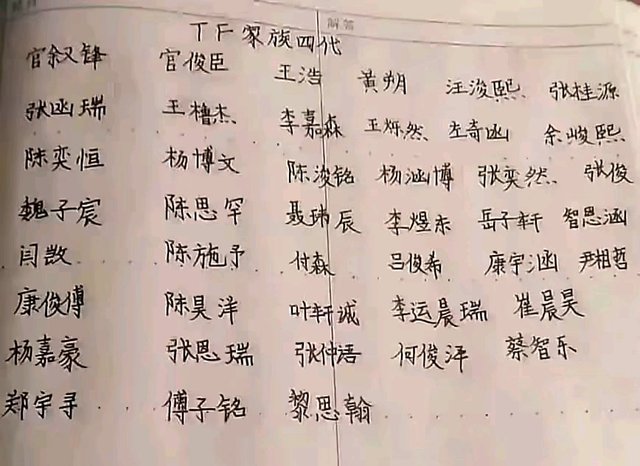 解答
TF家族四代
官叙锋 官俊臣 王浩 黄朔 汪浚熙 张桂源
张函瑞 王橹杰 李嘉森 王烁然 左奇函 余峻熙
陈奕恒 杨博文 陈浚铭 杨涵博 张奕然 张俊
魏子宸 陈思罕 聂玮辰 李煜东 岳子轩 智恩涵
闫敔 陈施予 付森 吕俊希 康宇涵 尹相哲
康俊傅 陈昊洋 叶轩诚 李运晨瑞 崔晨昊
杨嘉豪 张思瑞 张仲语 何俊泙 蔡智乐
郑宇寻 傅子铭 黎思翰